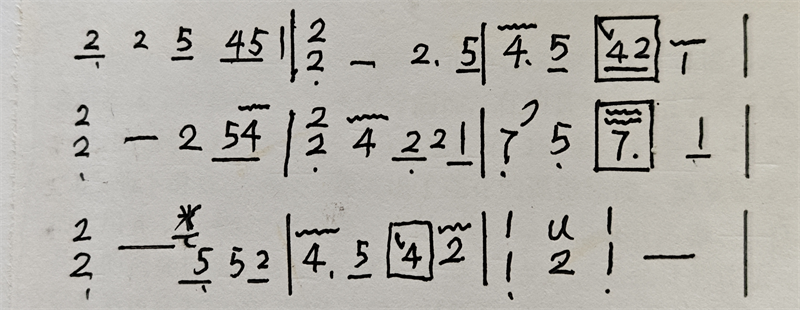 2 2 5 4 5 1 | 2 2 - 2. 5 | 4. 5 4 2 1 |
2 2 - 2 5 4 | 2 2 4 2 2 1 | 7 5 7. 1 |
2 2 - 5 5 2 | 4. 5 4 2 | 1 1 2 1 1 - |